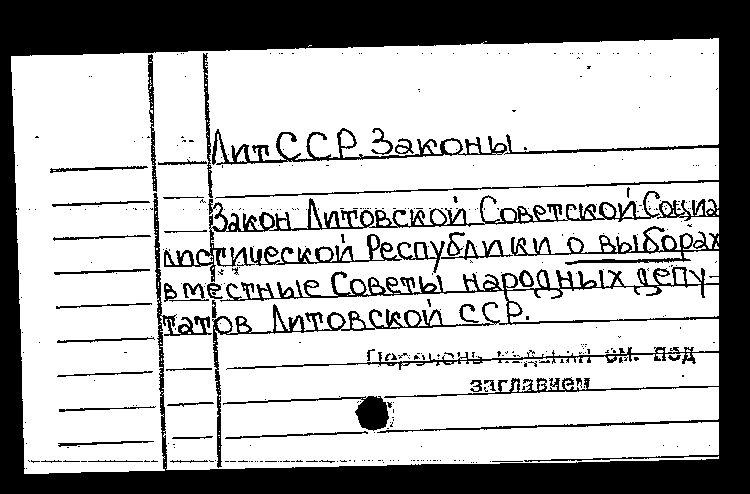 ЛитССР. Законы.
Закон Литовской Советской Социа
листической Республики о выборах
в местные Советы народных депу-
татов Литовской ССР.
Перечень изданий см. под
заглавием